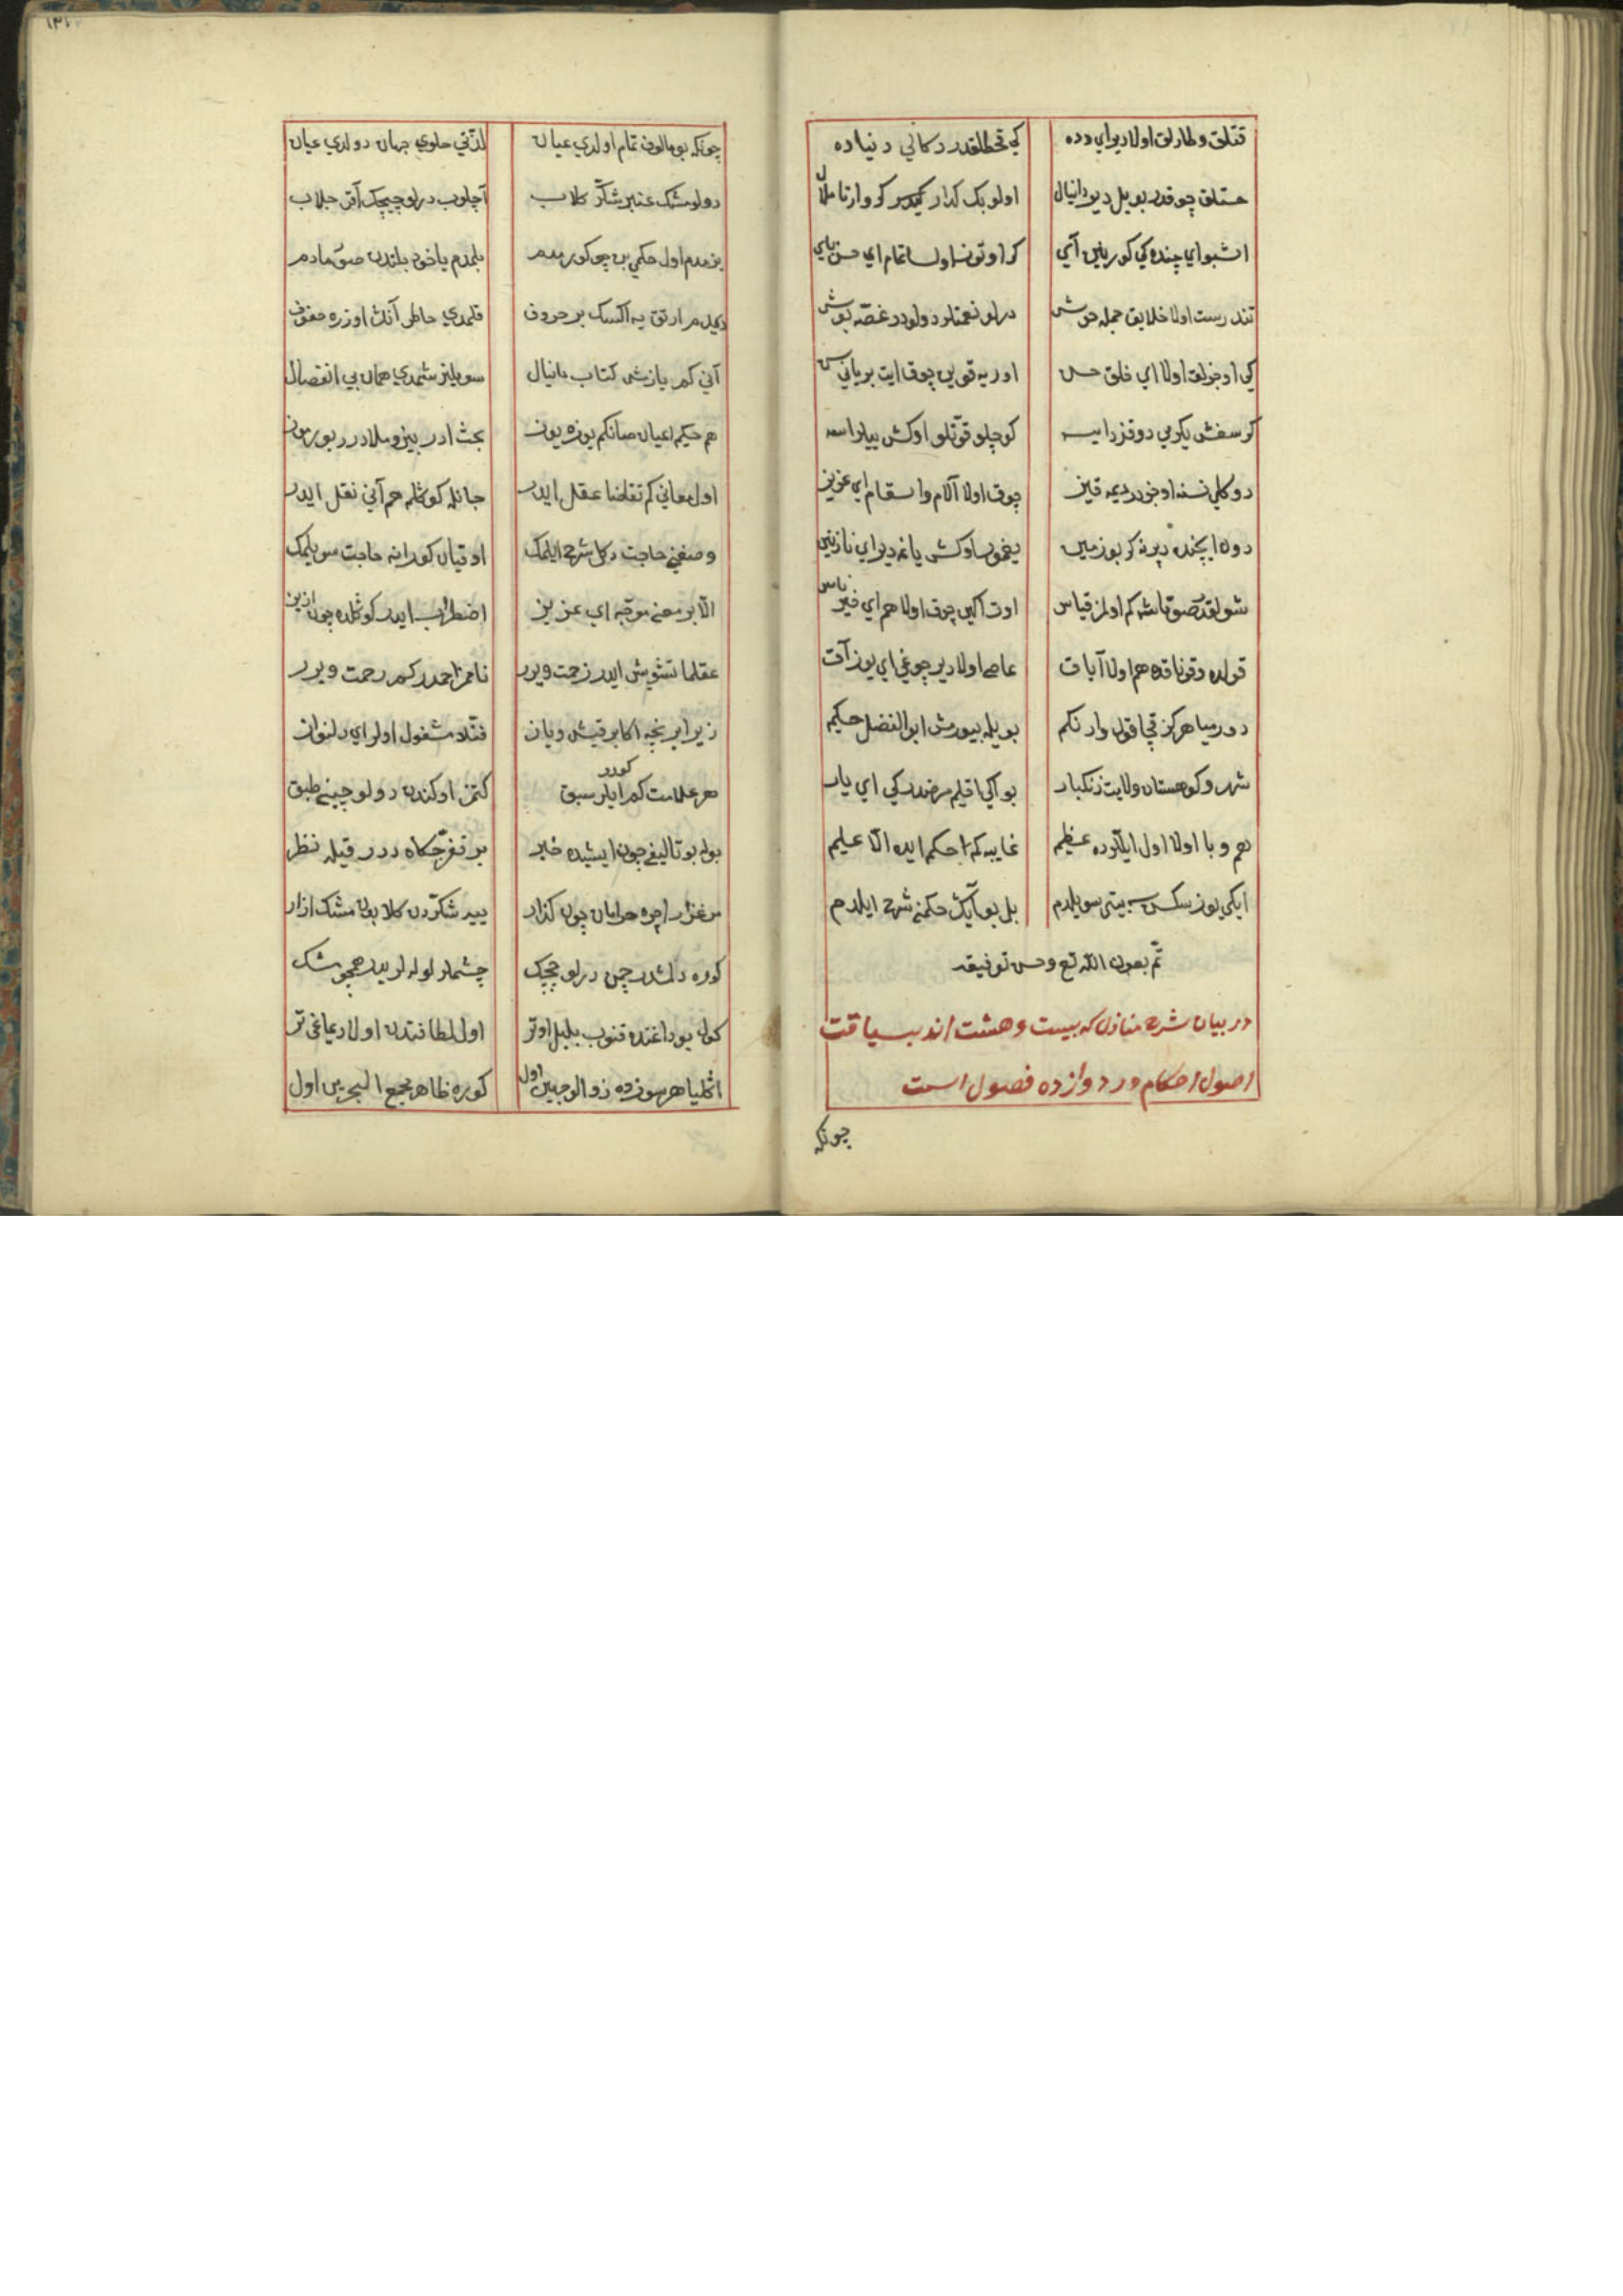 قتلق و طارلق اولا دیر ای دده کي قحطلقدر دکالي دنیاده
خستلق چوقدر بو ییل دیر دانیال اولو بک کدار کیدر کر وار تا ملال
اشبو ای چنده کي کورینن آي کر اوتوز اولسا تمام اي حسن باي
تندرست اولا خلایق جمله خوش درلو نعمتلر دولودر غصه بوش
کي اوجزلق اولا اي خلق حسن اوریه قوین چوق ایت بریانی
کر سغش یکرمي دوقز دایسه کوچلو قوتلو اوکش ییلر اسه
دوکلي نسنه اوجزدر دیمه قیز چوق اولا آلام و اسقام اي عزیز
دون ایچنده دپرنه کر یوز زمین یغمور اوکش یاغه دیر اي نازنین
شولقدر صوتاشه کم اولمز قیاس اوت اکین چوق اولا هم اي خیر ناس
قولده و قوناقده هم اولا آباق عاصي اولا دیر چوغي اي یوز آق
دورمیا هرکز قچا قول وار نکم بویله بیورمش ابو الفضل حکیم
شهر و کوهستان ولایت زنکبار بو آکي اقلیم مرضدر کي اي یار
هم وبا اولا اول ایلرده عظیم غایبه کم احکم ایده الا علیم
ایکي یوز سکسن بیتي سویلدم بل بو آیک حکمني شرح ایلدم
تم بعون الله تع و حسن توفیقه
در بیان شرح منازل که بیست و هشت اند بسیاقت
اصول احکام در دوازده فصول است
چونکه
چونکه بو مالون تمام اولدي عیان لذتي حلوي جهان دولدي عیان
دولو مشک عنبر شکر کلاب آچلوب درلو چیچک آقر جلاب
یزمدم اول حکمي بن چو کورمدم بلمدم یاخود بلندن صورمادم
دیمدم ارتق یه اکسک بر حروف قلمدي خاطر آنک اوزره
آني کم یازمش کتاب دانیال سویلنر شمدي همان بي انفصال
هم حکیم اعیان صانکم یوزه یوز بحث ادر بیز و ملادر
اول معاني کم تقاضا عقل ایدر جانله کوکلم هم آني نقل ایدر
وصفني حاجت دکل شرح ایلمک اوقیان کورانه حاجت سویلمک
الا بر معني موجه اي عزیز اضطراب ایدر کوکلده چون ازیز
عقلما تشویش ایدر زحمت ویرر نامم احمددر کم رحمت ویرر
زیرا بر نجه اکابر قیش و یاز فنله مشغول اولر اي دلنواز
هر علامت کم ایلر سبق کورر کتمز اوکندن دولو چیني طبق
بوله بو تالیفي چون ایشیده خبر بر تفرجکاه در قیله نظر
مرغزار اچره خرامان چون کذار ییر شکردن کلا بدن مشک ازار
کوره دلشدر چمن درلو چیچک چشمه لر لوله لریدر همچو مشک
کول بوداغنده قنوب بلبل اوتر اول لطافتدن اولا دماغي تر
اکلیا هر سوزده ذو الوجهین اول کوره ظاهر مجمع البحرین اول